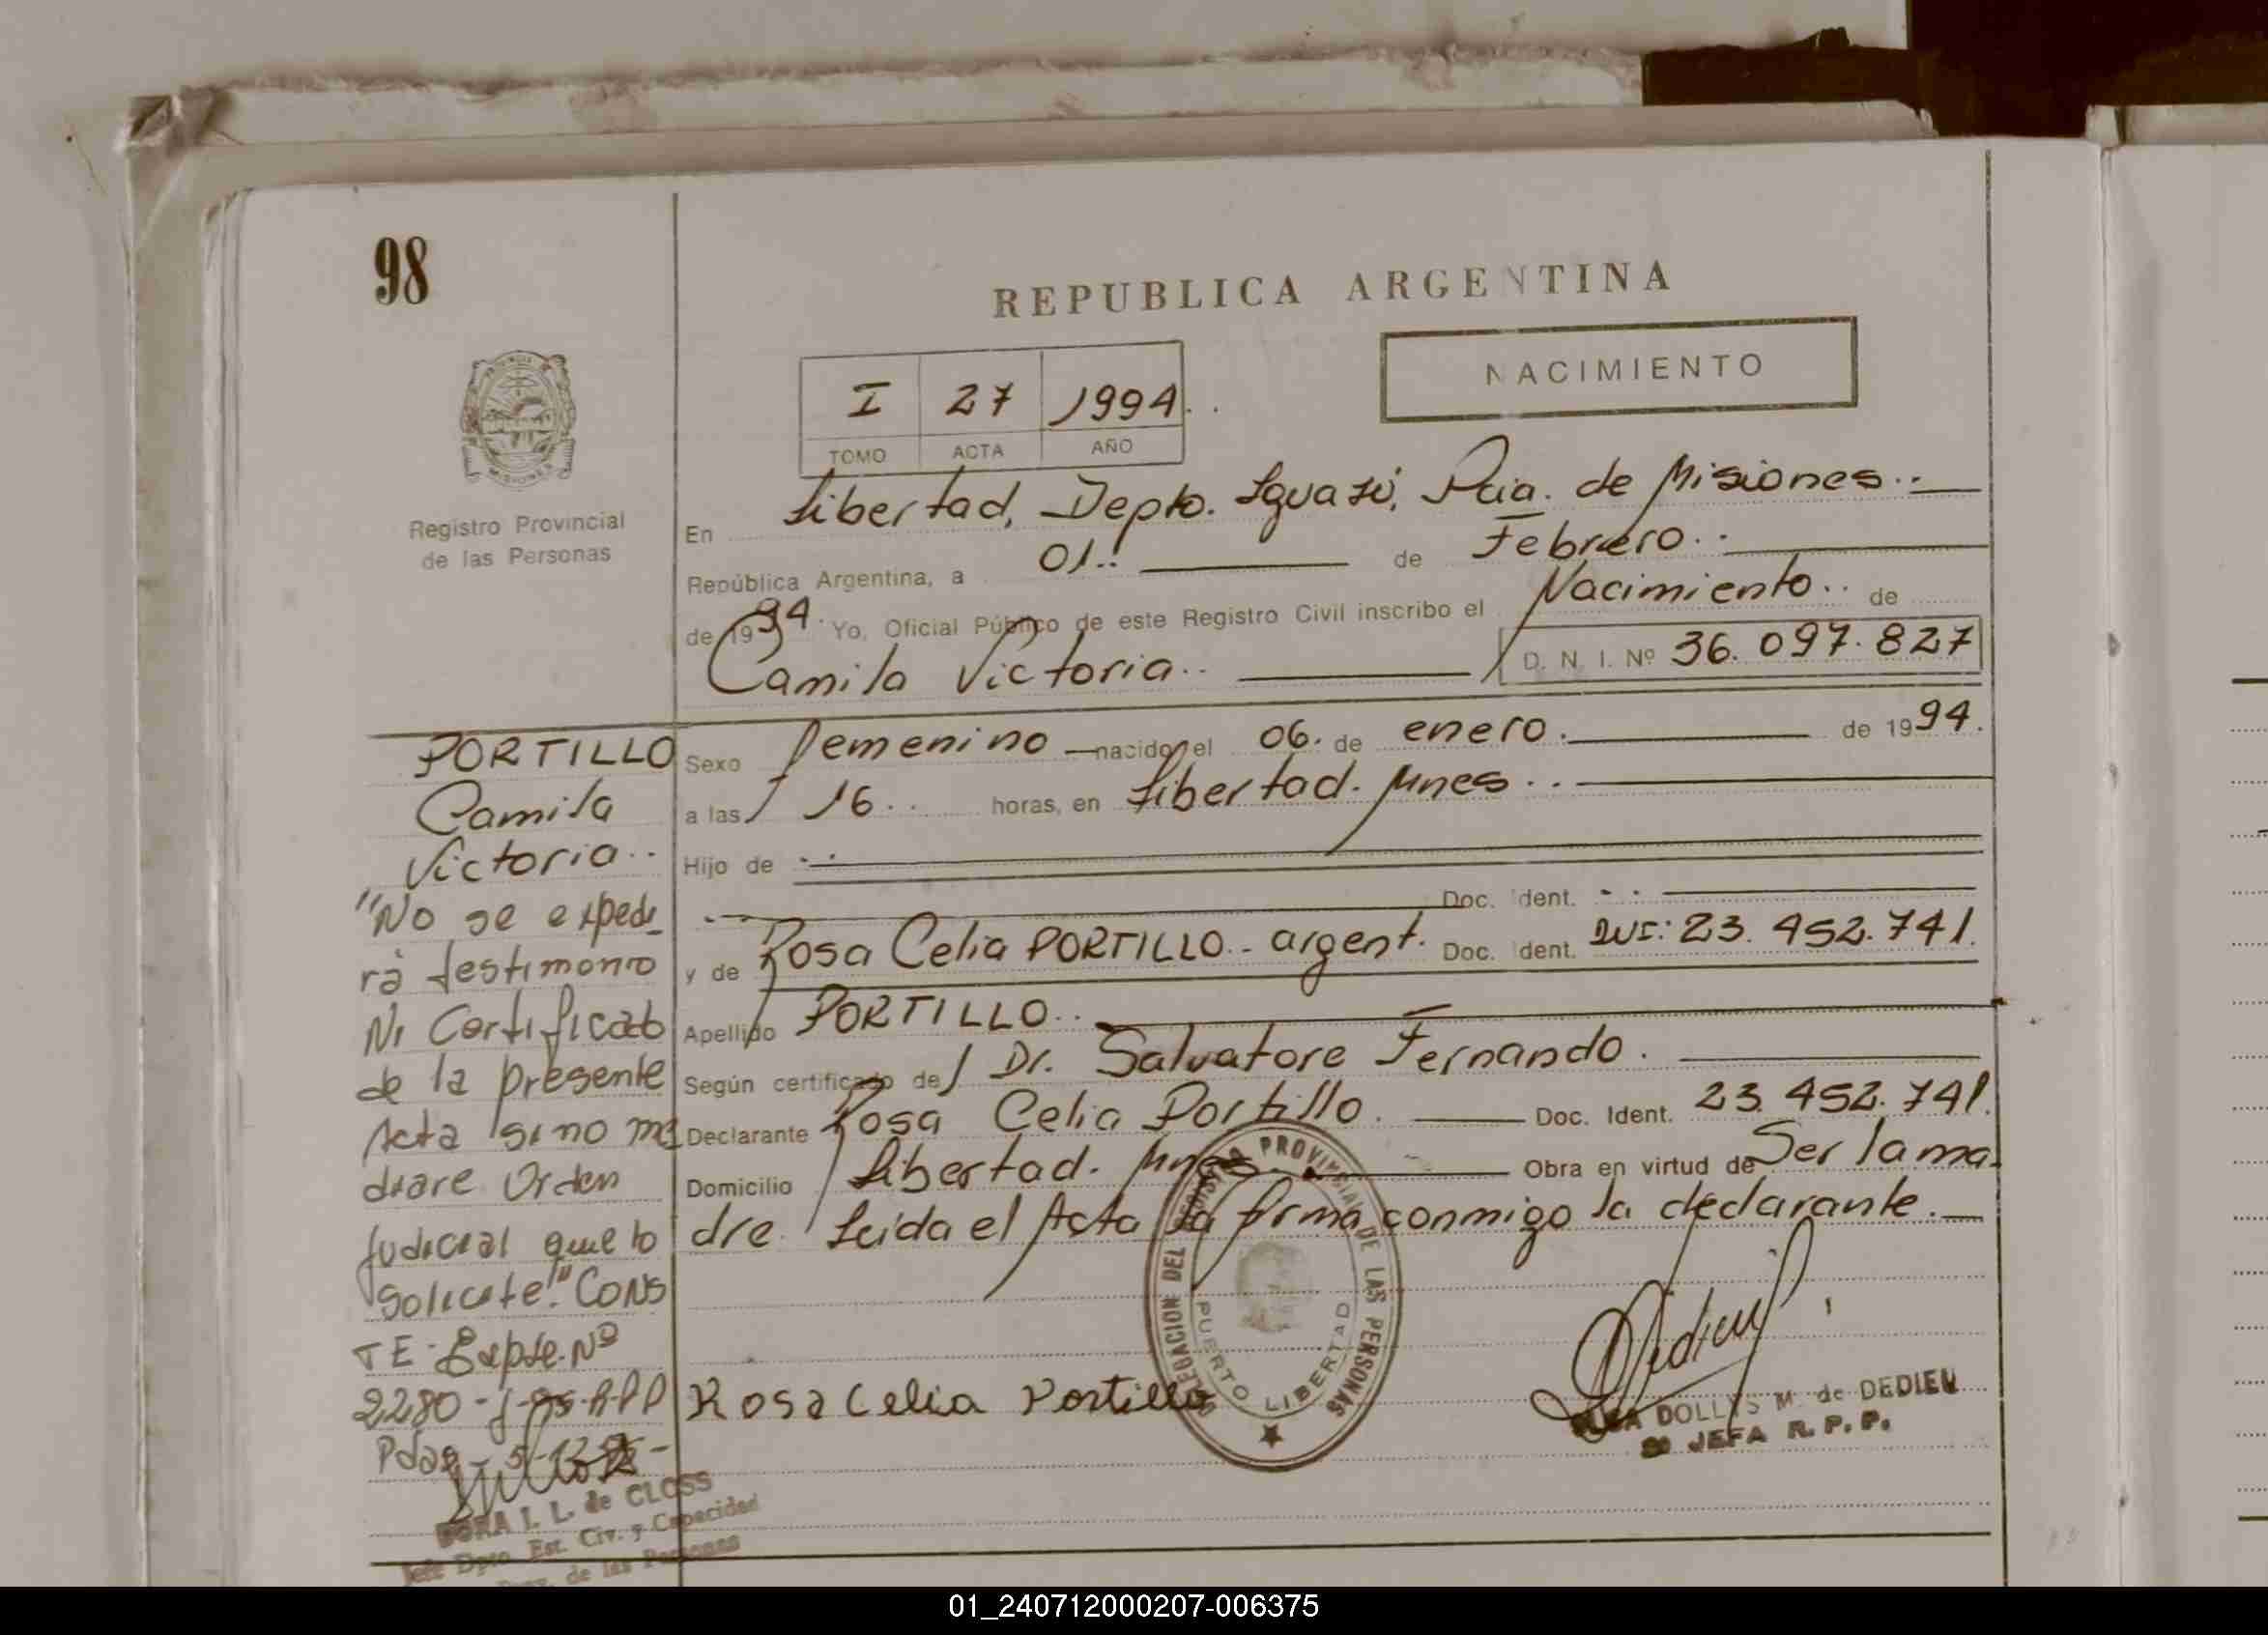 98
REPUBLICA ARGENTINA
NACIMIENTO
I 27 1994.
TOMO ACTA AÑO
PROVINCIA
MISIONES
Registro Provincial
de las Personas
En Libertad, Depto. Iguazú, Pcia. de Misiones..
República Argentina, a 01.. de Febrero..
de 1994. Yo, Oficial Público de este Registro Civil inscribo el Nacimiento.. de
Camila Victoria.. D. N. I. Nº 36.097.827
PORTILLO
Camila
Victoria..
"No se expedi_
rá testimonio
Ni Certificado
de la presente
Acta si no me
diare Orden
Judicial que lo
Solicite". CONS
TE-Expte. Nº
2280-J-95-R.P.P
Pdas-5-12-95-
DORA I. L. de CLOSS
Jefe Dpto. Est. Civ. y Capacidad
Prov. de las Personas
Sexo femenino nacido el 06. de enero. de 1994.
a las 16.. horas, en Libertad. Mnes..
Hijo de
Doc. Ident.
y de Rosa Celia PORTILLO.- argent. Doc. Ident. DNI: 23.952.741.
Apellido PORTILLO..
Según certificado de Dr. Salvatore Fernando.
Declarante Rosa Celia Portillo. Doc. Ident. 23.952.741.
Domicilio Libertad. Mnes Obra en virtud de Ser la ma-
dre. Leída el Acta la firma conmigo la declarante.
DELEGACION DEL REGISTRO PROVINCIAL DE LAS PERSONAS
PUERTO LIBERTAD
Rosa Celia Portillo
DOLLYS M. de DEDIEU
JEFA R. P. P.
01_240712000207-006375